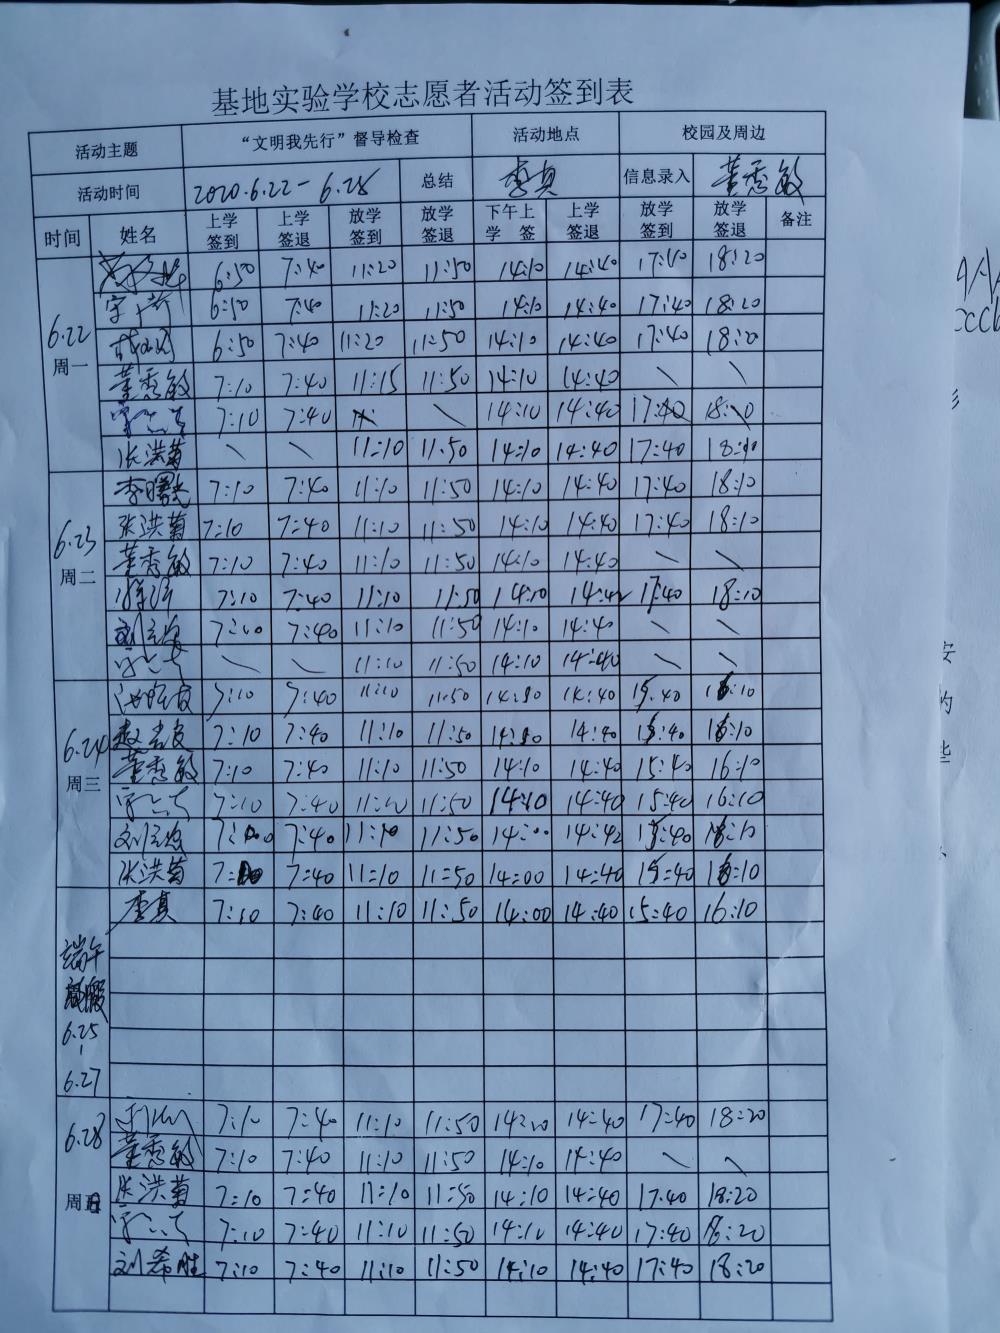 基地实验学校志愿者活动签到表
活动主题 “文明我先行”督导检查 活动地点 校园及周边
活动时间 2020.6.22-6.28 总结 李真 信息录入 董秀敏
时间 姓名 上学签到 上学签退 放学签到 放学签退 下午上学 签 上学签退 放学签到 放学签退 备注
6.22 周一
6:50 7:40 11:20 11:50 14:10 14:40 17:40 18:20
6:50 7:40 11:20 11:50 14:10 14:40 17:40 18:20
6:50 7:40 11:20 11:50 14:10 14:40 17:40 18:20
董秀敏 7:10 7:40 11:15 11:50 14:10 14:40 \ \
7:10 7:40 \ 14:10 14:40 17:40
张洪菊 \ \ 11:10 11:50 14:10 14:40 17:40
6.23 周二
李曙光 7:10 7:40 11:10 11:50 14:10 14:40 17:40 18:10
张洪菊 7:10 7:40 11:10 11:50 14:10 14:40 17:40 18:10
董秀敏 7:10 7:40 11:10 11:50 14:10 14:40 \ \
7:10 7:40 11:10 11:50 14:10 17:40 18:10
7:40 11:10 11:50 14:10 14:40 \ \
\ \ 11:10 11:50 14:10 14:40 \ \
6.24 周三
7:10 7:40 11:10 11:50 14:40 15:40 16:10
7:10 7:40 11:10 11:50 14:40 15:40 16:10
董秀敏 7:10 7:40 11:10 11:50 14:10 14:40 15:40 16:10
7:10 7:40 11:50 14:10 14:40 15:40 16:10
7:40 11:10 11:50 14:00 14:42 15:40 16:10
张洪菊 7:40 11:10 11:50 14:00 14:40 15:40 16:10
李真 7:10 7:40 11:10 11:50 14:00 14:40 15:40 16:10
端午
放假
6.25
-
6.27
6.28 周日
7:10 7:40 11:10 11:50 14:40 17:40 18:20
董秀敏 7:10 7:40 11:10 11:50 14:10 14:40 \ \
张洪菊 7:10 7:40 11:10 11:50 14:10 14:40 17:40 18:20
7:10 7:40 11:10 11:50 14:10 14:40 17:40 18:20
刘希胜 7:10 7:40 11:10 11:50 14:10 14:40 17:40 18:20
安
的
些